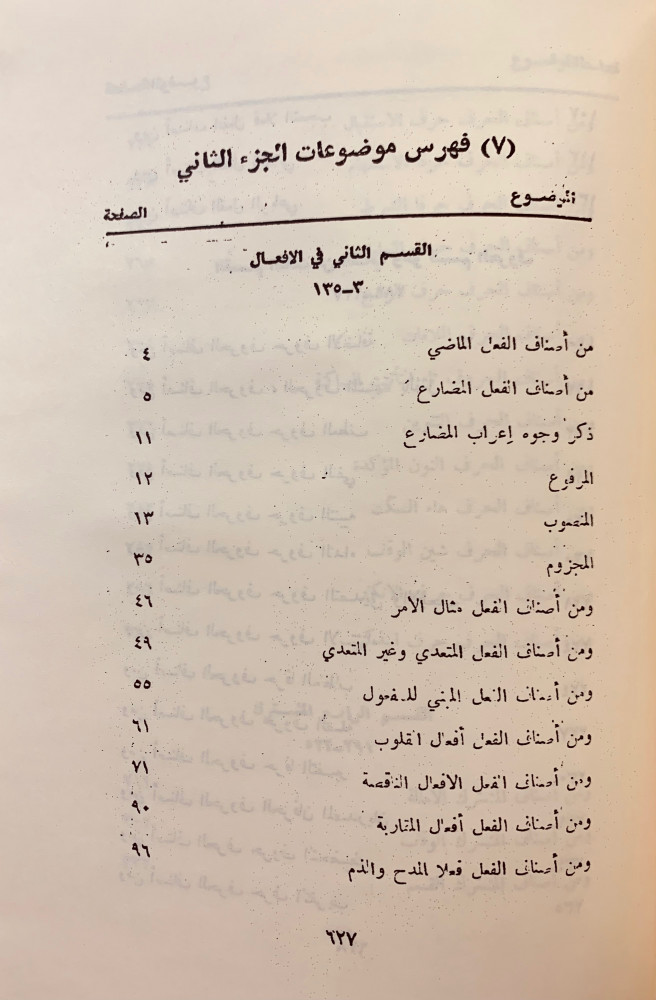 (٧) فهرس موضوعات الجزء الثاني
الموضوع الصفحة
القسم الثاني في الافعال
٣-١٣٥
من أصناف الفعل الماضي ٤
من أصناف الفعل المضارع ٥
ذكر وجوه إعراب المضارع ١١
المرفوع ١٢
المنصوب ١٣
المجزوم ٣٥
ومن أصناف الفعل مثال الأمر ٤٦
ومن أصناف الفعل المتعدي وغير المتعدي ٤٩
ومن أصناف الفعل المبني للمفعول ٥٥
ومن أصناف الفعل أفعال القلوب ٦١
ومن أصناف الفعل الافعال الناقصة ٧١
ومن أصناف الفعل أفعال المقاربة ٩٠
ومن أصناف الفعل فعلا المدح والذم ٩٦
٦٢٧